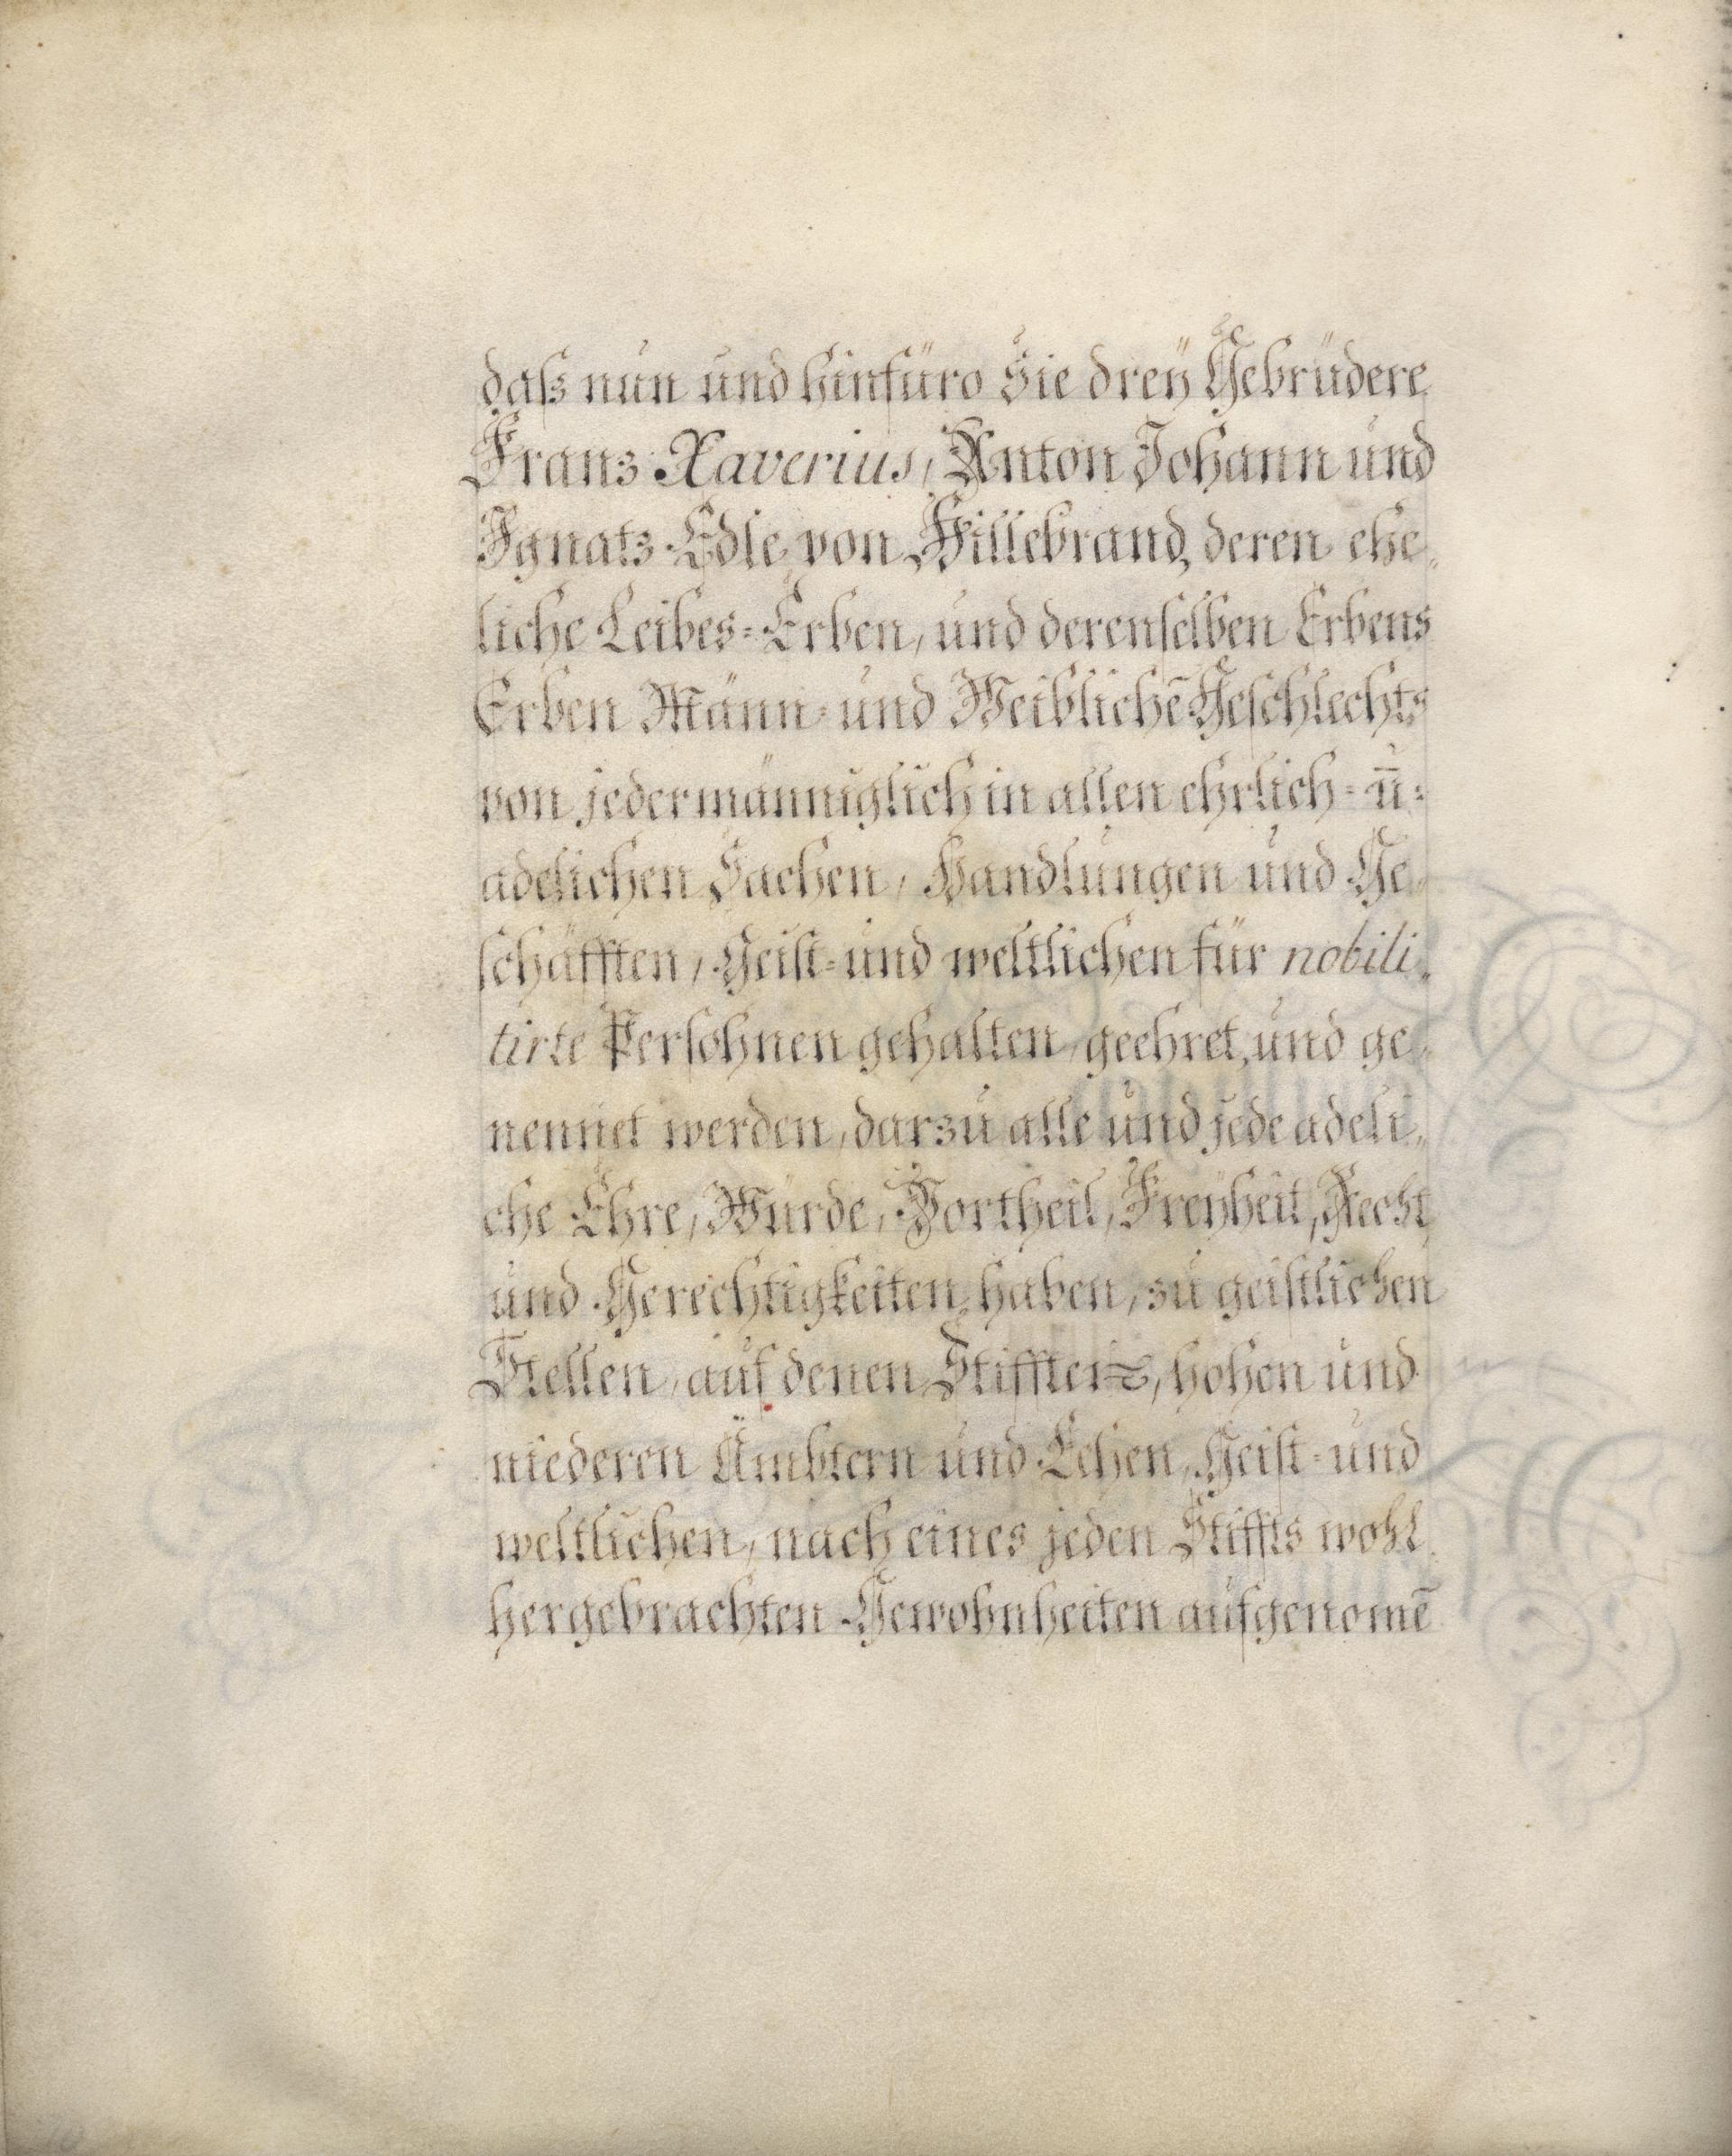 daß nun und hinfüro Sie dreÿ Gebrüdere
Franz Xaverius, Anton Johann und
Ignatz Edle von Hillebrand, deren ehe„
liche Leibes=Erben, und derenselben Erbens
Erben Männ= und Weiblichē Geschlechts
von jedermänniglich in allen ehrlich= un̄=
adelichen Sachen, Handlungen und Ge„
schäfften, Geist= und weltlichen für nobili„
tirte Persohnen gehalten, geehret, und ge„
nennet werden, darzu alle und jede adeli„
che Ehre, Würde, Vortheil, Freÿheit, Recht,
und Gerechtigkeiten haben, zu geistlichen
Stellen, auf denen Stifftern, hohen und
niederen Ämbtern und Lehen, Geist= und
weltlichen, nach eines jeden Stiffts wohl
hergebrachten Gewohnheiten aufgenomē